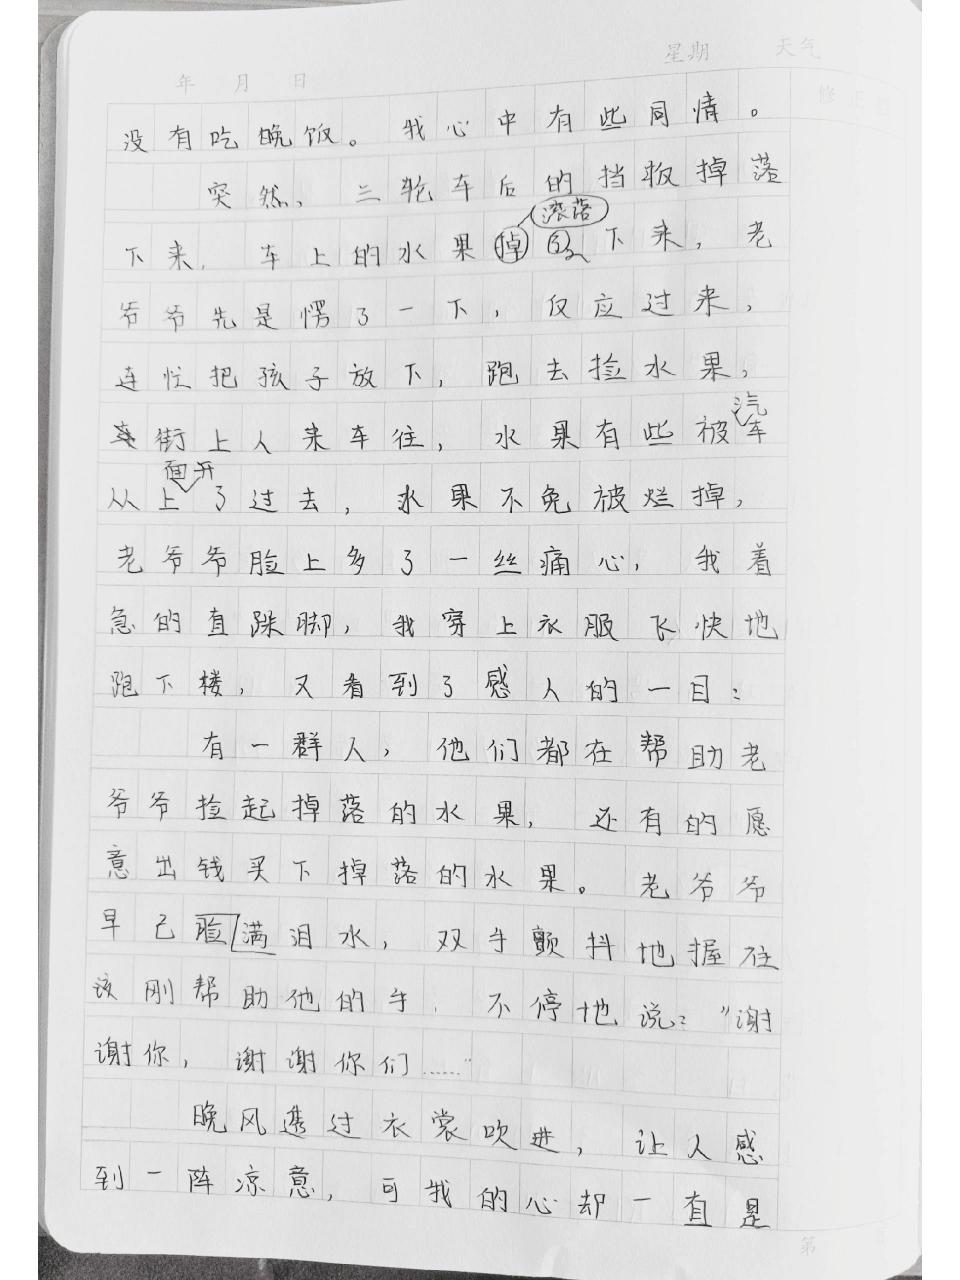 年 月 日 星期 天气
修正栏
没有吃晚饭。我心中有些同情。
突然，三轮车后的挡板掉落
滚落
下来，车上的水果掉 下来，老
爷爷先是愣了一下，反应过来，
连忙把孩子放下，跑去捡水果，
汽
街上人来车往，水果有些被车
面开
从上了过去，水果不免被烂掉，
老爷爷脸上多了一丝痛心，我着
急的直跺脚，我穿上衣服飞快地
跑下楼，又看到了感人的一目：
有一群人，他们都在帮助老
爷爷捡起掉落的水果，还有的愿
意出钱买下掉落的水果。老爷爷
早已脸满泪水，双手颤抖地握住
该刚帮助他的手，不停地说：“谢
谢你，谢谢你们……”
晚风透过衣裳吹进，让人感
到一阵凉意，可我的心却一直是
第